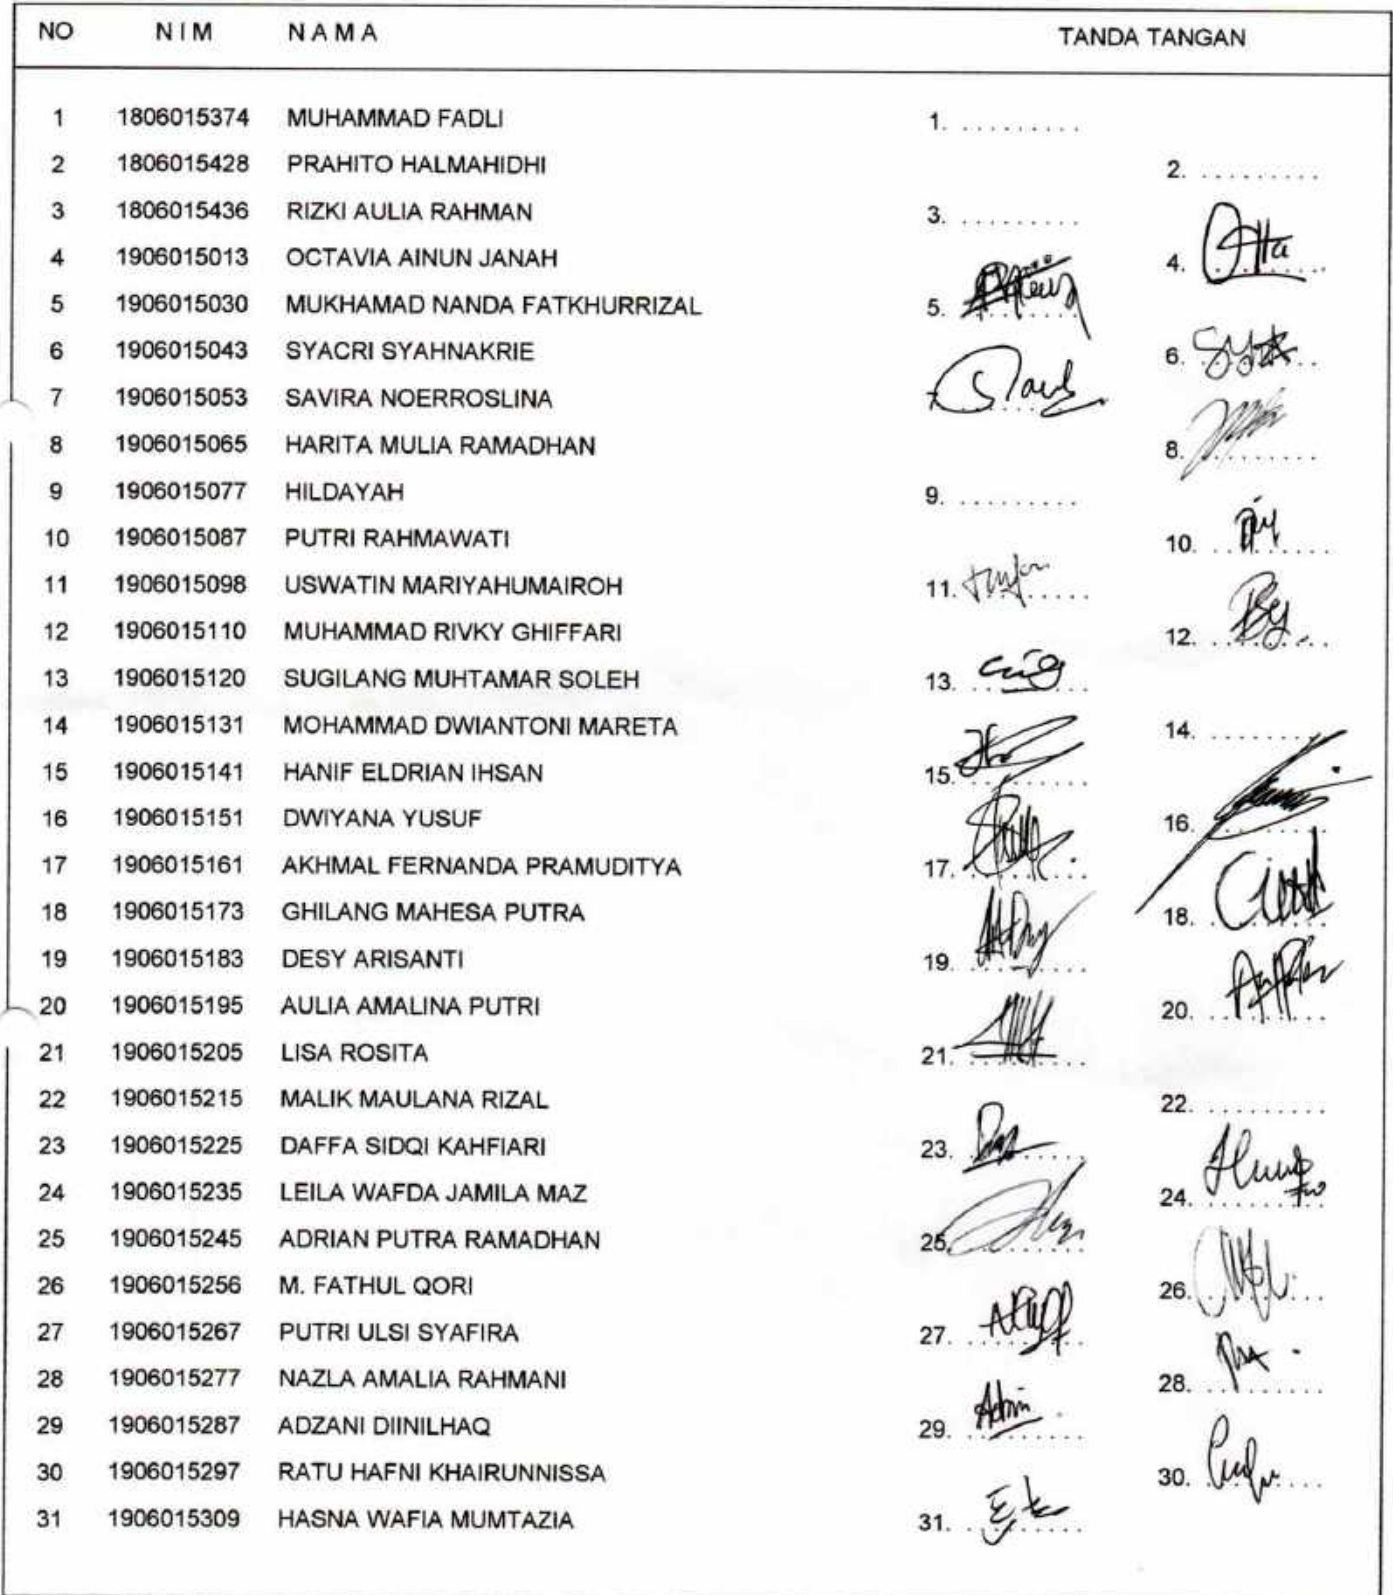 NO NIM NAMA TANDA TANGAN
1 1806015374 MUHAMMAD FADLI 1. .........
2 1806015428 PRAHITO HALMAHIDHI 2. .........
3 1806015436 RIZKI AULIA RAHMAN 3. .........
4 1906015013 OCTAVIA AINUN JANAH 4.
5 1906015030 MUKHAMAD NANDA FATKHURRIZAL 5.
6 1906015043 SYACRI SYAHNAKRIE 6.
7 1906015053 SAVIRA NOERROSLINA 7.
8 1906015065 HARITA MULIA RAMADHAN 8.
9 1906015077 HILDAYAH 9. .........
10 1906015087 PUTRI RAHMAWATI 10.
11 1906015098 USWATIN MARIYAHUMAIROH 11.
12 1906015110 MUHAMMAD RIVKY GHIFFARI 12.
13 1906015120 SUGILANG MUHTAMAR SOLEH 13.
14 1906015131 MOHAMMAD DWIANTONI MARETA 14. .........
15 1906015141 HANIF ELDRIAN IHSAN 15.
16 1906015151 DWIYANA YUSUF 16.
17 1906015161 AKHMAL FERNANDA PRAMUDITYA 17.
18 1906015173 GHILANG MAHESA PUTRA 18.
19 1906015183 DESY ARISANTI 19.
20 1906015195 AULIA AMALINA PUTRI 20.
21 1906015205 LISA ROSITA 21.
22 1906015215 MALIK MAULANA RIZAL 22. .........
23 1906015225 DAFFA SIDQI KAHFIARI 23.
24 1906015235 LEILA WAFDA JAMILA MAZ 24.
25 1906015245 ADRIAN PUTRA RAMADHAN 25.
26 1906015256 M. FATHUL QORI 26.
27 1906015267 PUTRI ULSI SYAFIRA 27.
28 1906015277 NAZLA AMALIA RAHMANI 28.
29 1906015287 ADZANI DIINILHAQ 29.
30 1906015297 RATU HAFNI KHAIRUNNISSA 30.
31 1906015309 HASNA WAFIA MUMTAZIA 31.